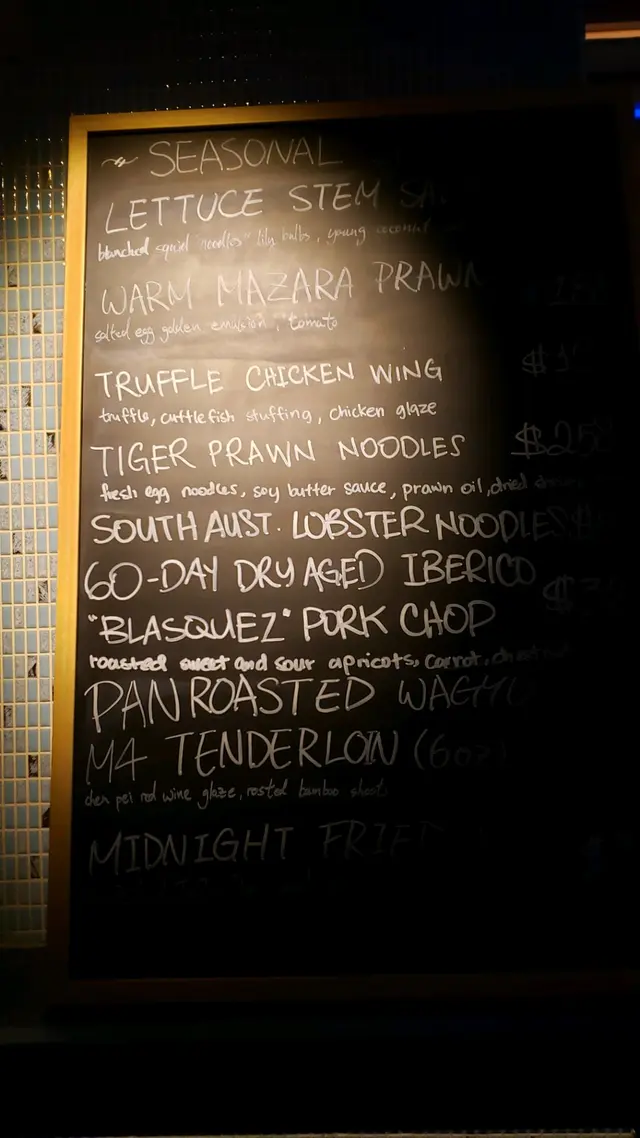 ~ SEASONAL
LETTUCE STEM
blanched squid "noodles" lily bulbs, young coconut
WARM MAZARA PRAWN
salted egg golden emulsion, tomato
TRUFFLE CHICKEN WING
truffle, cuttlefish stuffing, chicken glaze
TIGER PRAWN NOODLES
fresh egg noodles, soy butter sauce, prawn oil, dried
SOUTH AUST. LOBSTER NOODLES
60-DAY DRY AGED IBERICO
"BLASQUEZ" PORK CHOP
roasted sweet and sour apricots, carrot,
PAN ROASTED WAGYU
M4 TENDERLOIN (6oz)
chen pei red wine glaze, rosted bamboo shoots
MIDNIGHT FRIED